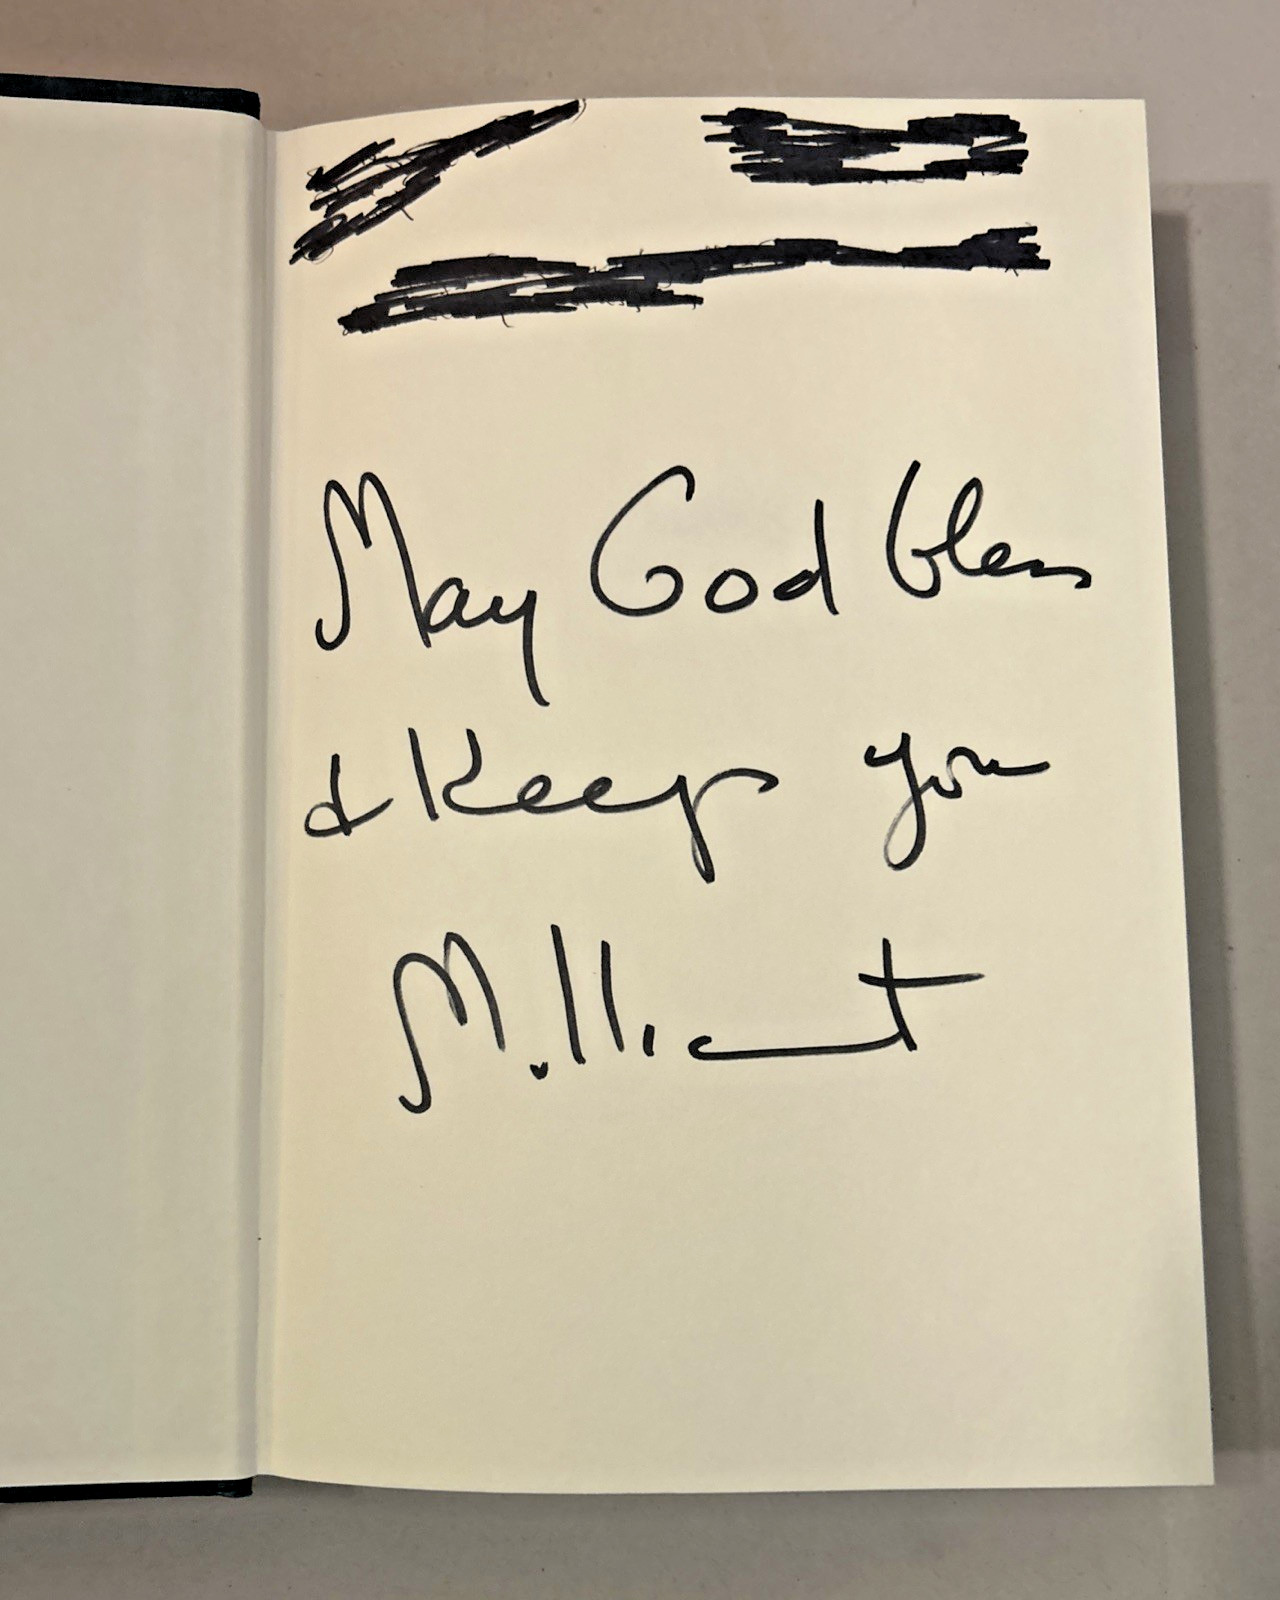 May God bless
& Keep you
Millicent